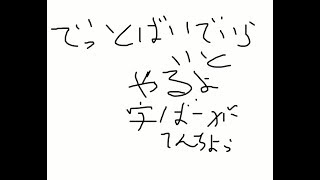 でっとばいでいら
いと
やるよ
字ばーが
てんちょう